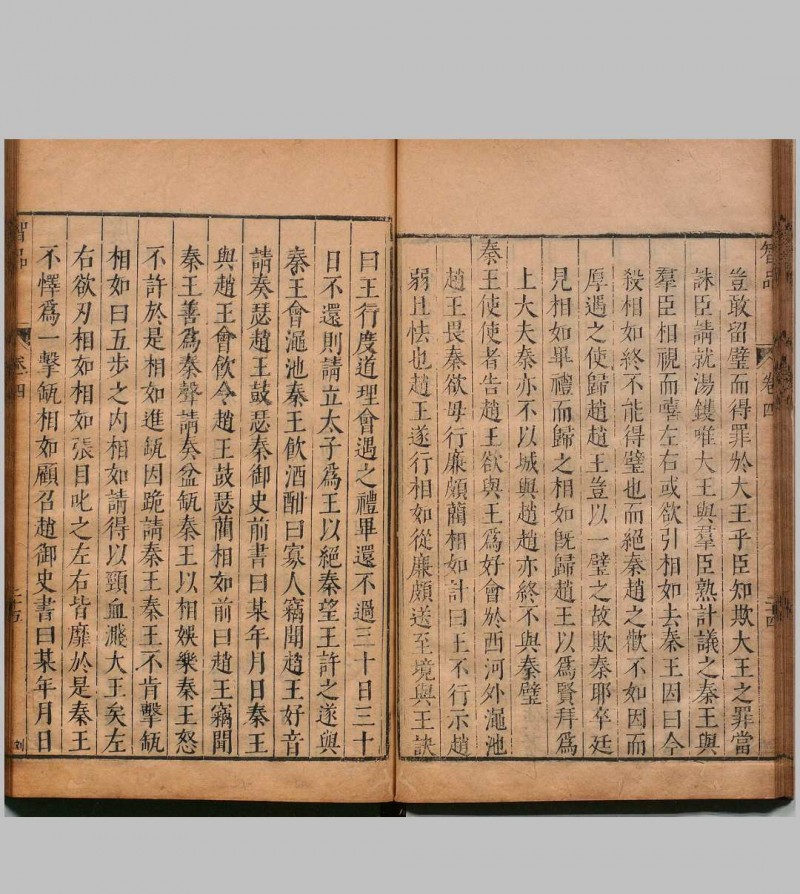 智品
卷四
二十四
豈敢留璧而得罪於大王乎臣知欺大王之罪當
誅臣請就湯鑊唯大王與羣臣熟計議之秦王與
羣臣相視而嘻左右或欲引相如去秦王因曰今
殺相如終不能得璧也而絕秦趙之歡不如因而
厚遇之使歸趙趙王豈以一璧之故欺秦耶卒廷
見相如畢禮而歸之相如旣歸趙王以爲賢拜爲
上大夫秦亦不以城與趙趙亦終不與秦璧
秦王使使者告趙王欲與王爲好會於西河外澠池
趙王畏秦欲毋行廉頗藺相如計曰王不行示趙
弱且怯也趙王遂行相如從廉頗送至境與王訣
曰王行度道理會遇之禮畢還不過三十日三十
日不還則請立太子爲王以絕秦望王許之遂與
秦王會澠池秦王飲酒酣曰寡人竊聞趙王好音
請奏瑟趙王鼓瑟秦御史前書曰某年月日秦王
與趙王會飲令趙王鼓瑟藺相如前曰趙王竊聞
秦王善爲秦聲請奏盆瓿秦王以相娛樂秦王怒
不許於是相如進瓿因跪請秦王秦王不肯擊瓿
相如曰五步之內相如請得以頸血濺大王矣左
右欲刃相如相如張目叱之左右皆靡於是秦王
不懌爲一擊瓿相如顧召趙御史書曰某年月日
智品
卷四
二十五
刘